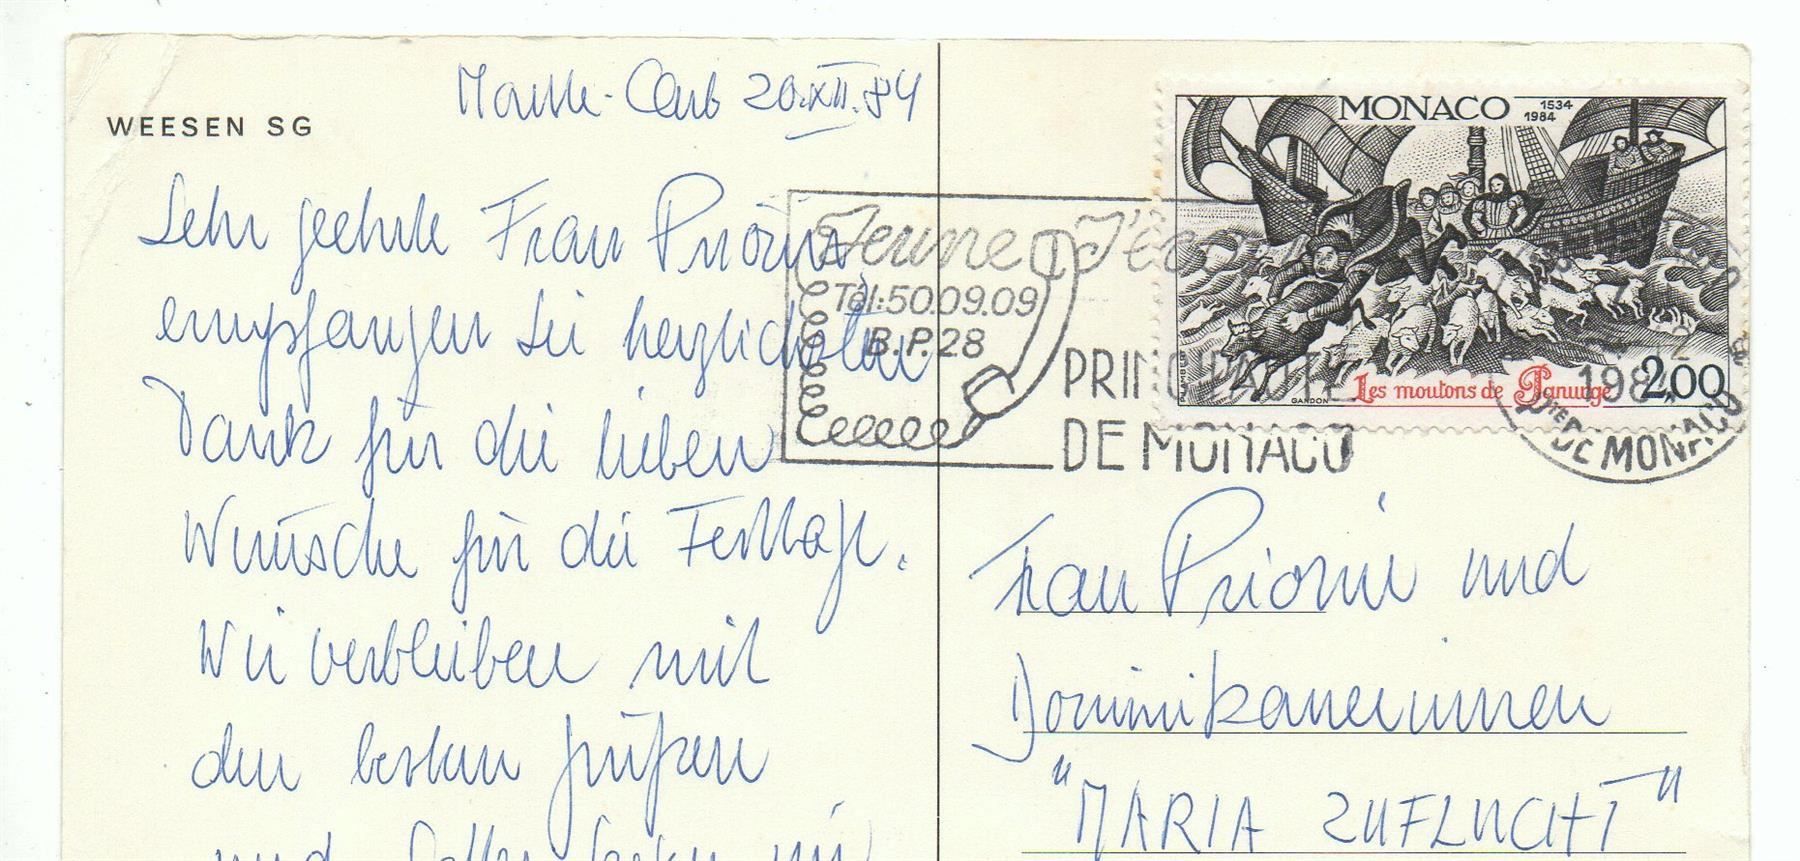 WEESEN SG
Monte-Carlo 20.XII.84
Sehr geehrte Frau Priorin,
empfangen Sie herzlichsten
Dank für die lieben
Wünsche für die Festtage.
Wir verbleiben mit
den besten Grüßen
und
Jeune J'éco
Tél:50.09.09
B.P.28
PRINCIPAUTE
DE MONACO
MONACO 1534
1984
Les moutons de Panurge 2,00
GANDON
198
DE MONACO
Frau Priorin und
Dominikanerinnen
"MARIA ZUFLUCHT"